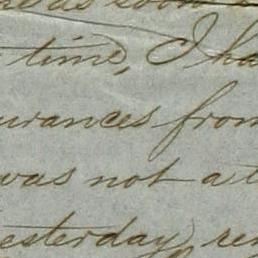 as soon
time, I ha
urances from
was not a t
esterday, re